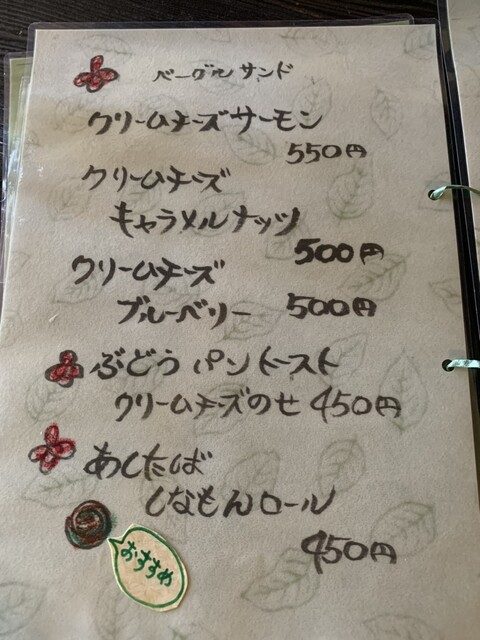 ベーグルサンド
クリームチーズサーモン
550円
クリームチーズ
キャラメルナッツ
500円
クリームチーズ
ブルーベリー 500円
ぶどうパントースト
クリームチーズのせ 450円
あしたば
しなもんロール
450円
おすすめ